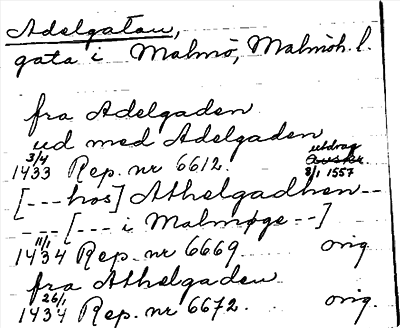 Adelgatan,
gata i Malmö, Malmöh. l.
fra Adelgaden
ud med Adelgaden
3/4 1433 Rep. nr 6612. utdrag 8/1 1557
[--- hos] Athelgadhen --
--- [--- i Malmøge --]
11/1 1434 Rep. nr 6669. orig.
fra Athelgaden
26/1 1434 Rep. nr 6672. orig.